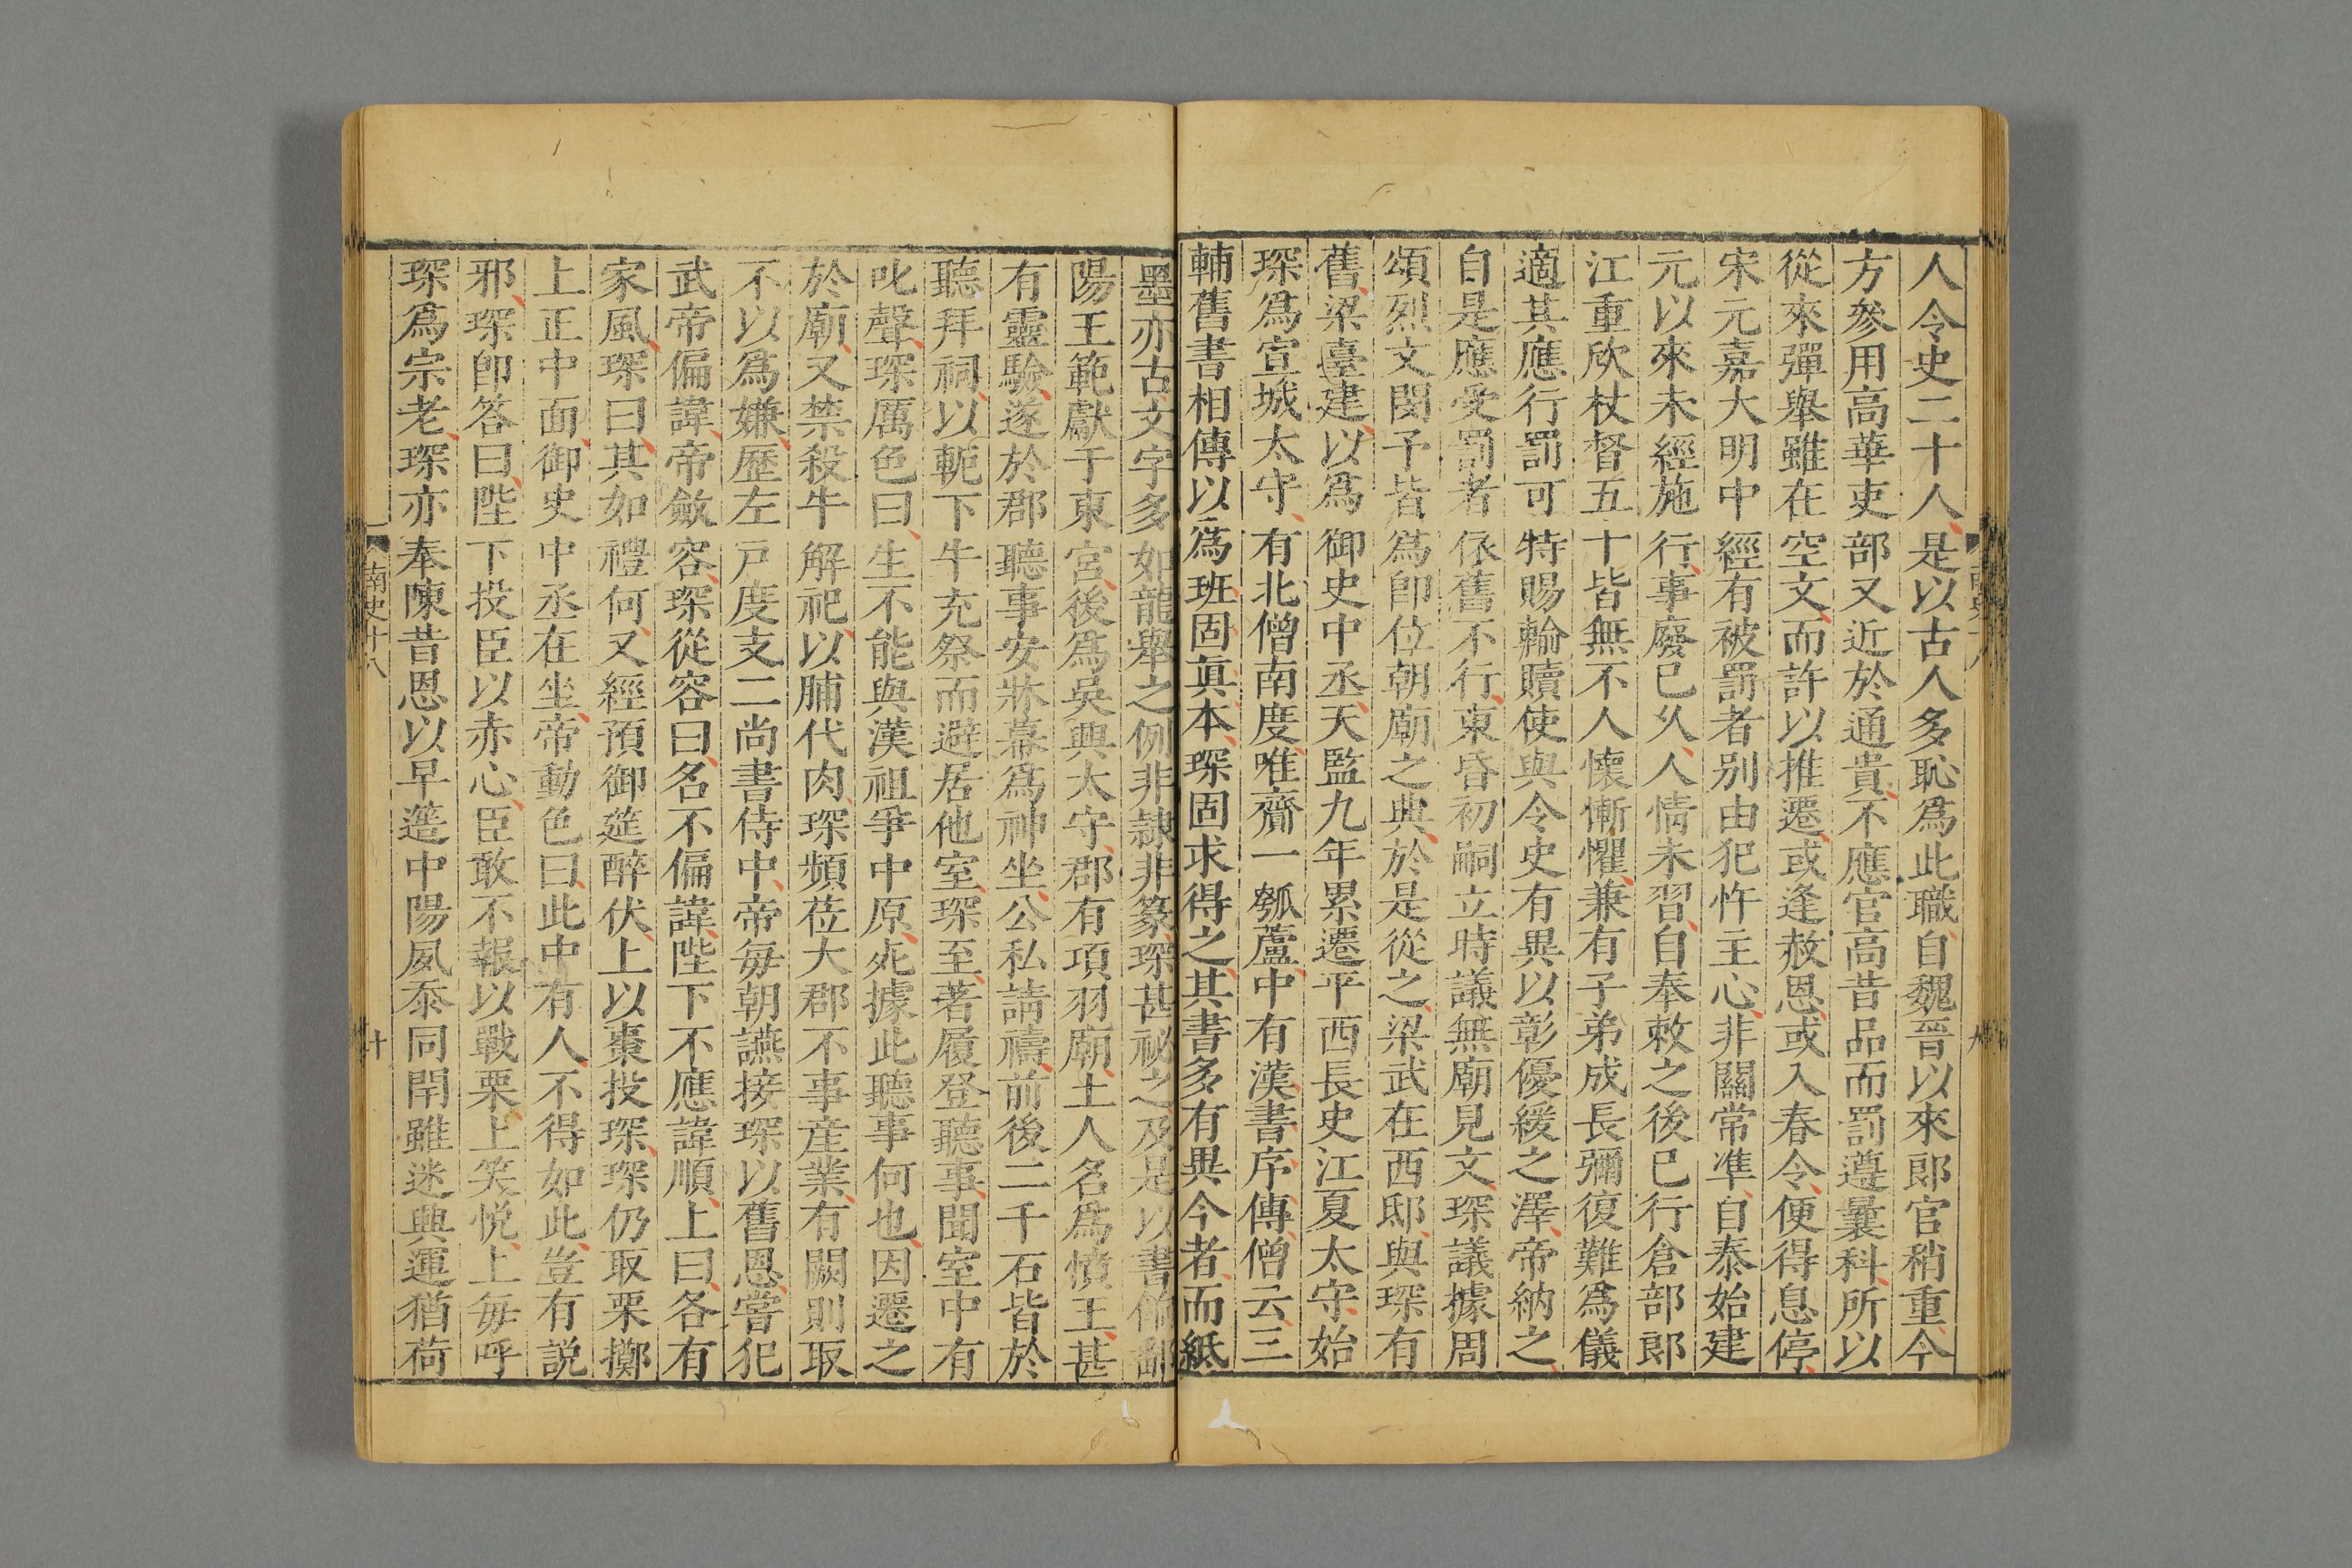 人令史二十人是以古人多恥爲此職自魏晉以來郎官稍重今
方參用高華吏部又近於通貴不應官高昔品而罰遵曩科所以
從來彈舉雖在空文而許以推遷或逢赦恩或入春令便得息停
宋元嘉大明中經有被罰者别由犯忤主心非關常準自泰始建
元以來未經施行事廢已久人情未習自奉敕之後已行倉部郎
江重欣杖督五十皆無不人懷慚懼兼有子弟成長彌復難爲儀
適其應行罰可特賜輸贖使與令史有異以彰優緩之澤帝納之
自是應受罰者依舊不行東昏初嗣立時議無廟見文琛議據周
頌烈文閔予皆爲即位朝廟之典於是從之梁武在西邸與琛有
舊梁臺建以爲御史中丞天監九年累遷平西長史江夏太守始
琛爲宣城太守有北僧南度唯齎一瓠蘆中有漢書序傳僧云三
輔舊書相傳以爲班固真本琛固求得之其書多有異今者而紙
墨亦古文字多如龍舉之例非隸非篆琛甚祕之及是以書餉鄱
陽王範獻于東宮後爲吳興太守郡有項羽廟土人名爲憤王甚
有靈驗遂於郡聽事安牀幕爲神坐公私請禱前後二千石皆於
聽拜祠以軛下牛充祭而避居他室琛至著履登聽事聞室中有
叱聲琛厲色曰生不能與漢祖爭中原死據此聽事何也因遷之
於廟又禁殺牛解祀以脯代肉琛頻莅大郡不事産業有闕則取
不以爲嫌歷左戸度支二尚書侍中帝每朝讌接琛以舊恩嘗犯
武帝偏諱帝斂容琛從容曰名不偏諱陛下不應諱順上曰各有
家風琛曰其如禮何又經預御筵醉伏上以棗投琛琛仍取栗擲
上正中面御史中丞在坐帝動色曰此中有人不得如此豈有説
邪琛即答曰陛下投臣以赤心臣敢不報以戰栗上笑悅上每呼
琛爲宗老琛亦奉陳昔恩以早簉中陽夙忝同閈雖迷興運猶荷
南史十八
十